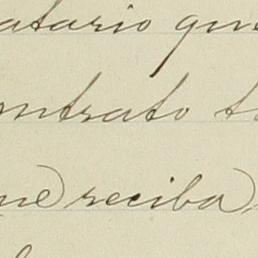 atario que
ontrato t
ue) reciba